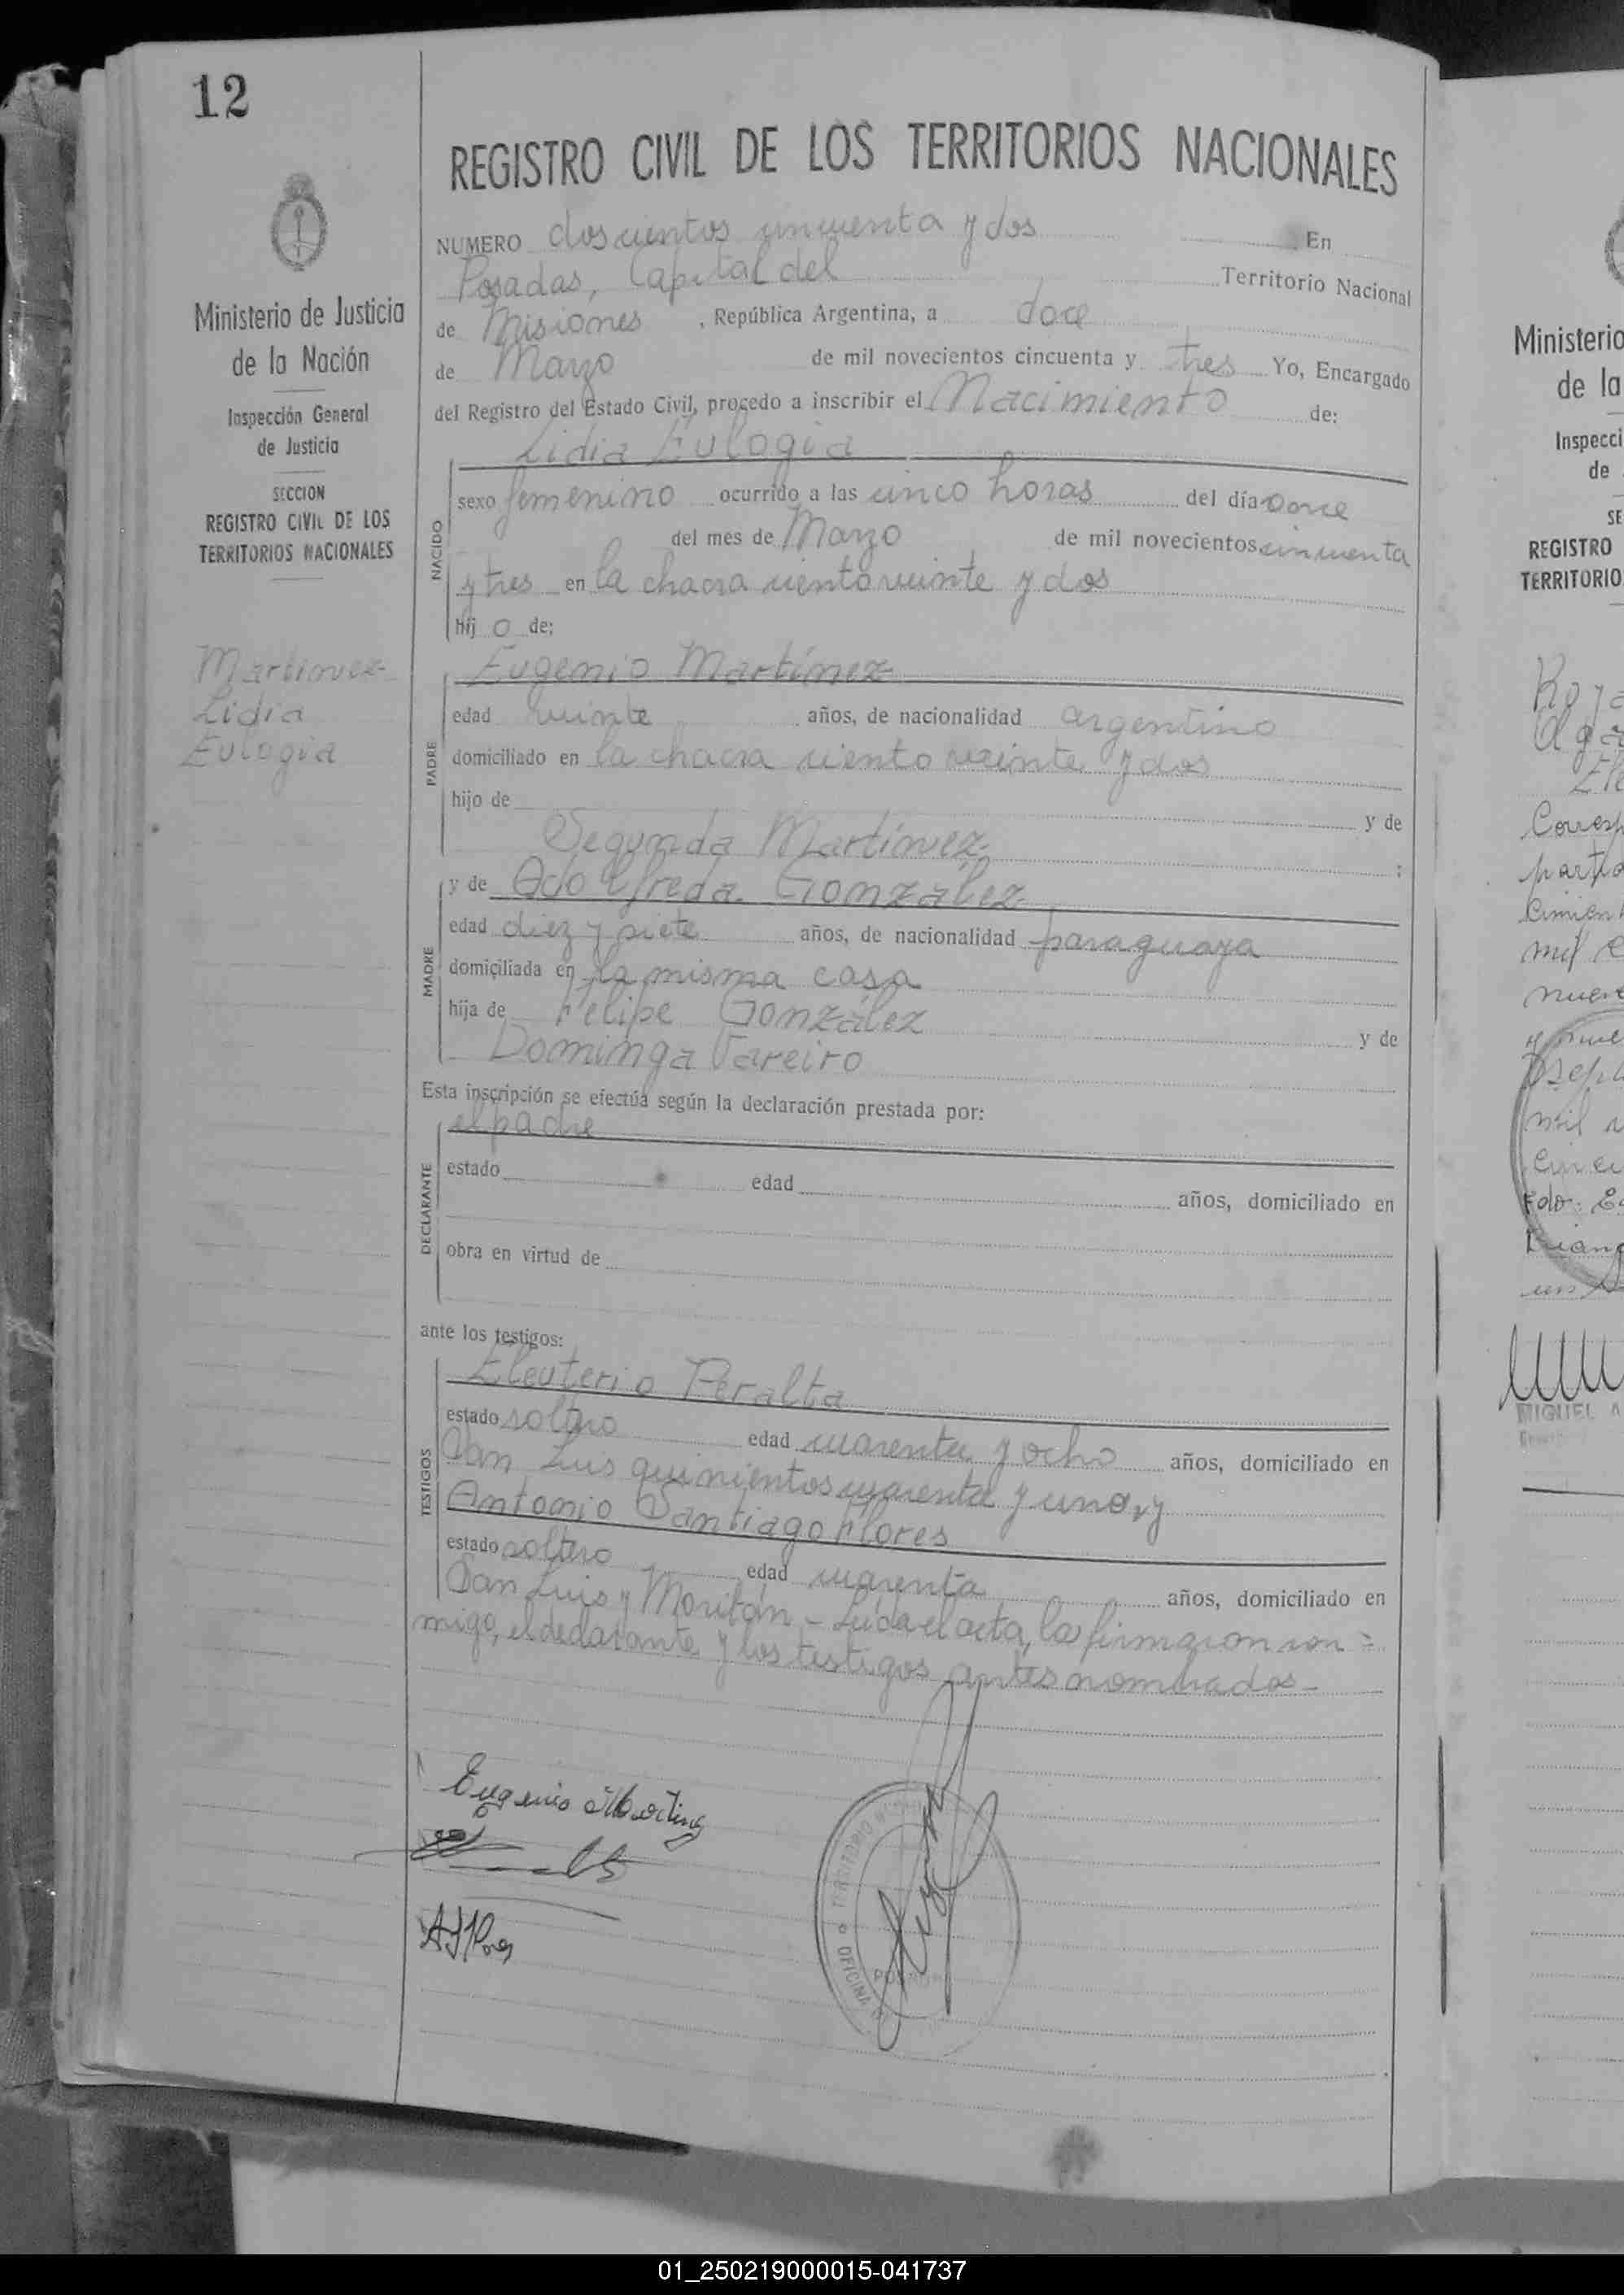 12
REGISTRO CIVIL DE LOS TERRITORIOS NACIONALES
Ministerio de Justicia
de la Nación
Inspección General
de Justicia
SECCION
REGISTRO CIVIL DE LOS
TERRITORIOS NACIONALES
Martinez
Lidia
Eulogia
NUMERO doscientos cincuenta y dos En
Posadas, Capital del Territorio Nacional
de Misiones, República Argentina, a doce
de Marzo de mil novecientos cincuenta y tres Yo, Encargado
del Registro del Estado Civil, procedo a inscribir el Nacimiento de:
NACIDO
Lidia Eulogia
sexo femenino ocurrido a las cinco horas del día once
del mes de Marzo de mil novecientos cincuenta
y tres en la chacra ciento veinte y dos
hij o de:
PADRE
Eugenio Martínez
edad veinte años, de nacionalidad argentino
domiciliado en la chacra ciento veinte y dos
hijo de y de
Segunda Martínez ;
MADRE
y de Adolfreda González
edad diez y siete años, de nacionalidad paraguaya
domiciliada en la misma casa
hija de Felipe González y de
Dominga Vareiro
Esta inscripción se efectúa según la declaración prestada por:
DECLARANTE
el padre
estado edad años, domiciliado en
obra en virtud de
ante los testigos:
TESTIGOS
Eleuterio Peralta
estado soltero edad cuarenta y ocho años, domiciliado en
San Luis quinientos cuarenta y uno, y
Antonio Santiago Flores
estado soltero edad cuarenta años, domiciliado en
San Luis y Moritán - Leída el acta, la firmaron con=
migo, el declarante y los testigos antes nombrados-
Eugenio Martinez
TERRITORIO
OFICINA
Ministerio
de la
Inspecci
de
SE
REGISTRO
TERRITORIO
Corresp
partid
mil
MIGUEL A
01_250219000015-041737